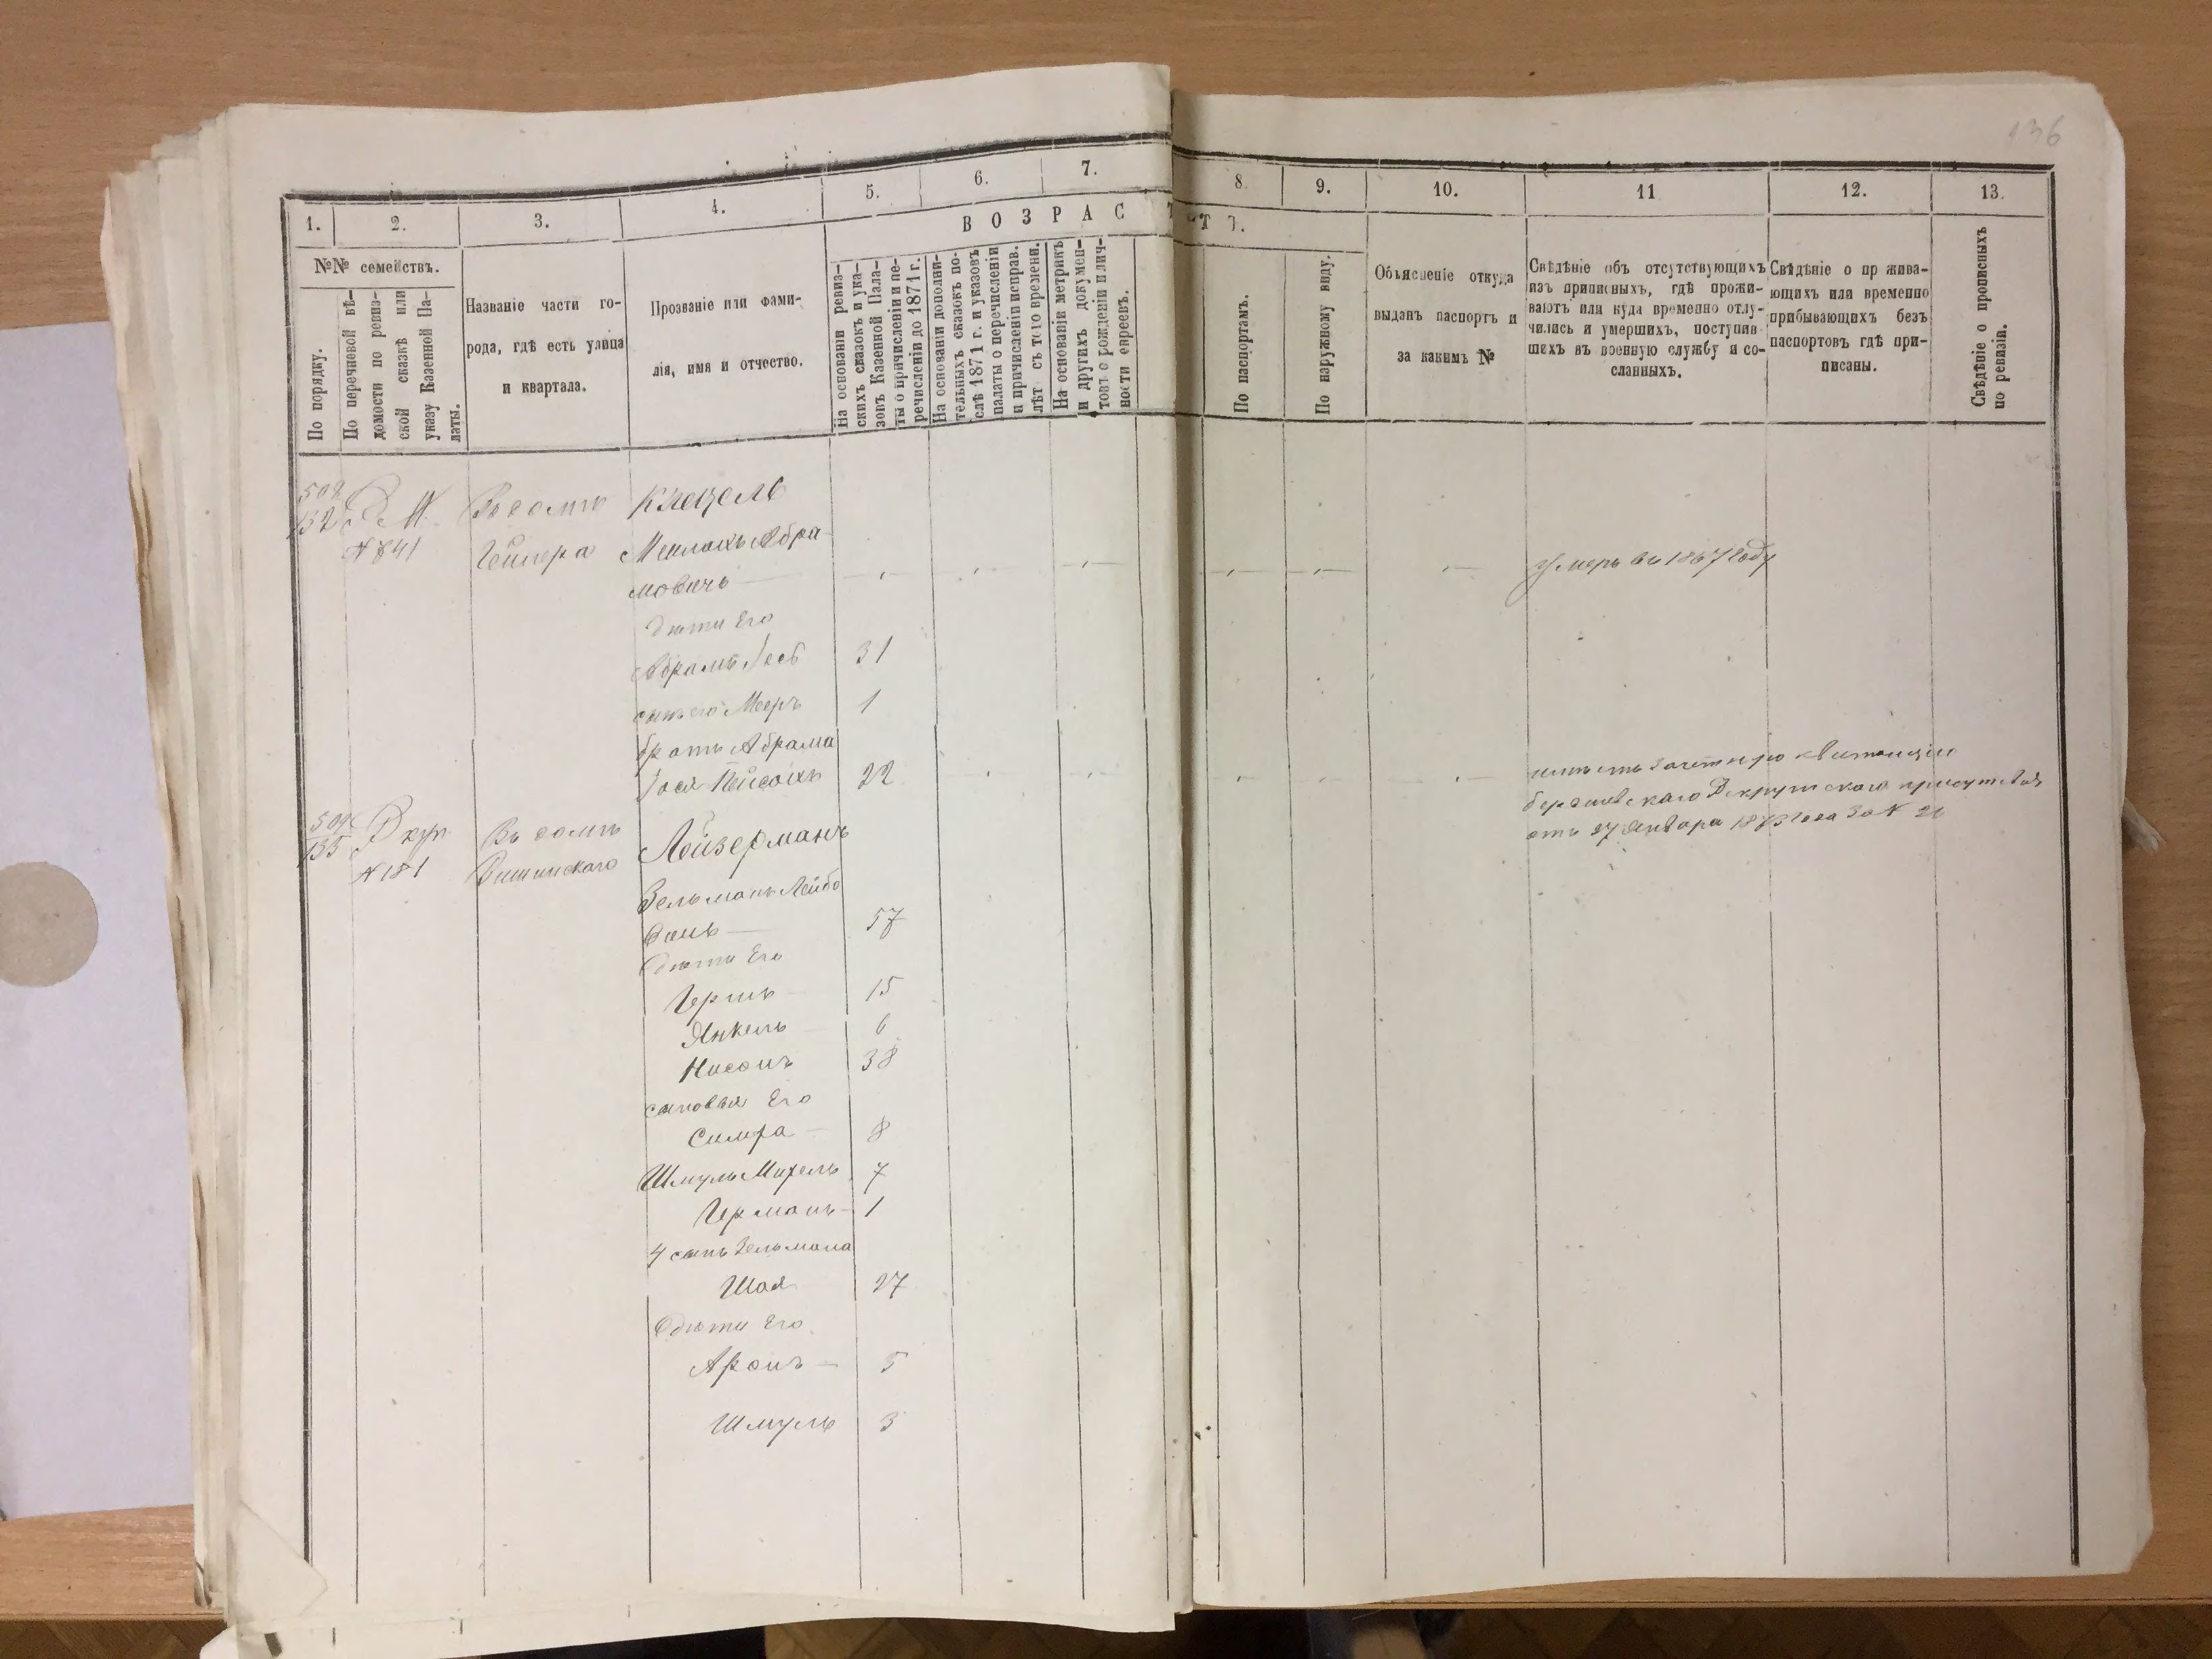 136
1.
2.
3.
4.
5.
6.
7.
8.
9.
10.
11
12.
13.
В О З Р А С Т Ъ.
№№ семействъ.
По порядку.
По перечневой вѣ-
домости по ревиз-
ской сказкѣ или
указу Казенной Па-
латы.
Названіе части го-
рода, гдѣ есть улица
и квартала.
Прозваніе или фами-
лія, имя и отчество.
На основаніи ревиз-
скихъ сказокъ и ука-
зовъ Казенной Пала-
ты о причисленіи и пе-
речисленіи до 1871 г.
На основаніи дополни-
тельныхъ сказокъ по-
слѣ 1871 г. и указовъ
палаты о перечисленіи
и причисленіи исправ.
лѣт съ того времени.
На основаніи метрикъ
и другихъ докумен-
товъ о рожденіи и лич-
ности евреевъ.
По паспортамъ.
По наружному виду.
Объясненіе откуда
выданъ паспортъ и
за какимъ №
Свѣдѣніе объ отсутствующихъ
изъ приписныхъ, гдѣ прожи-
ваютъ или куда временно отлу-
чились и умершихъ, поступив
шихъ въ военную службу и со-
сланныхъ.
Свѣдѣніе о пр жива-
ющихъ или временно
прибывающихъ безъ
паспортовъ гдѣ при-
писаны.
Свѣдѣніе о прописныхъ
по ревизіи.
132
N 841
Въ домѣ
Гейлера
Клецель
Мейлахъ Абра
мовичь
дѣти Его
Абрамъ Іесь 31
сынъ его Мееръ 1
братъ Абрама
Іося Пейсахъ 22
Умеръ въ 1867 году
отъ 27 Января 1873 года за N 21
N 181
Въ домѣ
Вишинскаго
Лейзерманъ
Зельманъ Лейбо
вичь 57
дѣти Его
Гершъ 15
Янкель 6
Насонъ 38
сыновья Его
Симха 8
Шмуль Михель 7
Германъ 1
4 сынъ Зельмана
Шая 27
дѣти Его
Аронъ 5
Шмуль 3